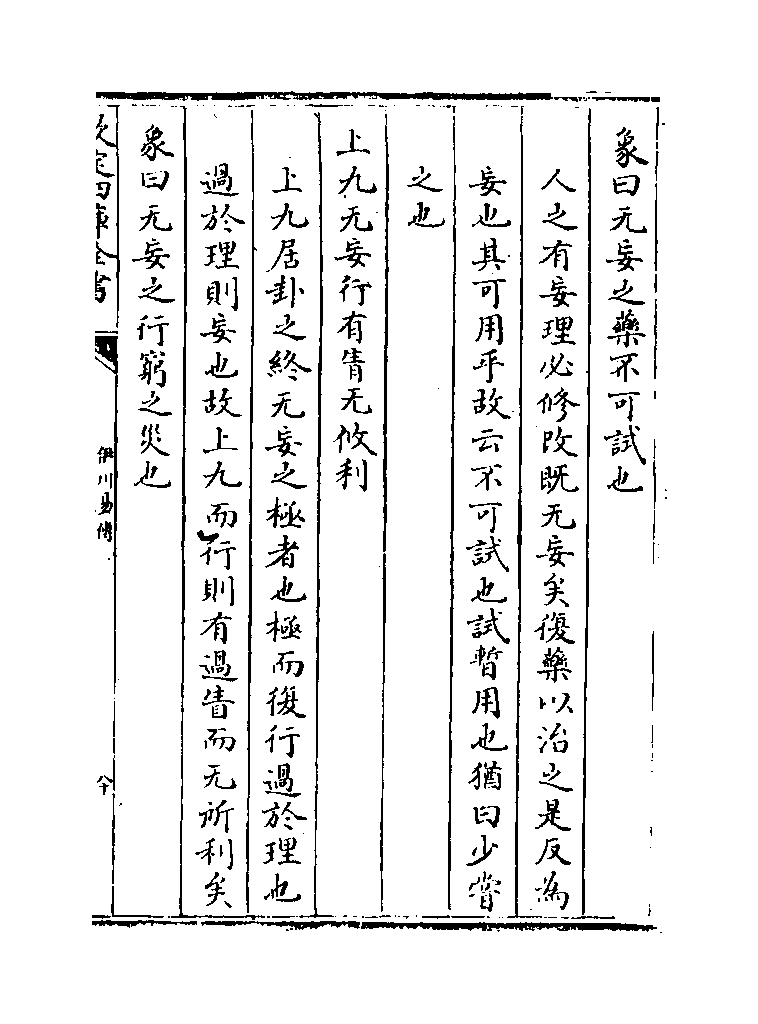 象曰无妄之藥不可試也
人之有妄理必修改既无妄矣復藥以治之是反為
妄也其可用乎故云不可試也試暫用也猶曰少嘗
之也
上九无妄行有眚无攸利
上九居卦之終无妄之極者也極而復行過於理也
過於理則妄也故上九而行則有過眚而无所利矣
象曰无妄之行窮之災也
欽定四庫全書
伊川易傳